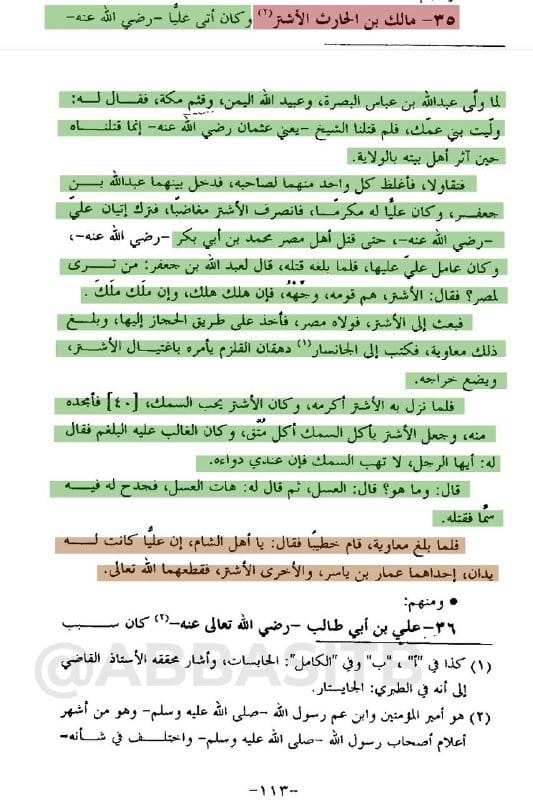 ٣٥- مالك بن الحارث الأشتر(٢) وكان أتى عليًّا -رضي الله عنه-
لما ولّى عبدالله بن عباس البصرة، وعبيد الله اليمن، وقثم مكة، فقال له:
ولّيت بني عمّك، فلم قتلنا الشيخ -يعني عثمان رضي الله عنه- إنما قتلناه
حين آثر أهل بيته بالولاية.
فتقاولا، فأغلظ كل واحد منهما لصاحبه، فدخل بينهما عبدالله بن
جعفر، وكان عليًّا له مكرمًا، فانصرف الأشتر مغاضبًا، فترك إتيان عليّ
-رضي الله عنه-، حتى قتل أهل مصر محمد بن أبي بكر -رضي الله عنه-،
وكان عامل عليّ عليها، فلما بلغه قتله، قال لعبد الله بن جعفر: من ترى
لمصر؟ فقال: الأشتر، هم قومه، وجِّهْهُ، فإن هلك هلك، وإن ملك ملك.
فبعث إلى الأشتر، فولاه مصر، فأخذ على طريق الحجاز إليها، وبلغ
ذلك معاوية، فكتب إلى الجانسار(١) دهقان القلزم يأمره باغتيال الأشتر،
ويضع خراجه.
فلما نزل به الأشتر أكرمه، وكان الأشتر يحب السمك، [٤٠] فأتجده
منه، وجعل الأشتر يأكل السمك أكل مُتَّق، وكان الغالب عليه البلغم فقال
له: أيها الرجل، لا تهب السمك فإن عندي دواءه.
قال: وما هو؟ قال: العسل، ثم قال له: هات العسل، فجدح له فيه
سمًّا فقتله.
فلما بلغ معاوية، قام خطيبًا فقال: يا أهل الشام، إن عليًّا كانت له
يدان، إحداهما عمار بن ياسر، والأخرى الأشتر، فقطعهما الله تعالى.
• ومنهم:
٣٦- علي بن أبي طالب -رضي الله تعالى عنه-(٢) كان سبب
(١) كذا في "أ"، "ب" وفي "الكامل": الجابسات، وأشار محققه الأستاذ القاضي
إلى أنه في الطبري: الجايستار.
(٢) هو أمير المؤمنين وابن عم رسول الله -صلى الله عليه وسلم- وهو من أشهر
أعلام أصحاب رسول الله -صلى الله عليه وسلم- واختلف في شأنه-
-١١٣-
@ABBASITB